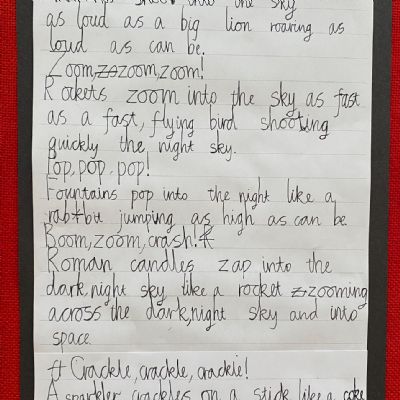 shoot into the sky
as loud as a big lion roaring as
loud as can be.
Zoom, zoom, zoom!
Rockets zoom into the sky as fast
as a fast, flying bird shooting
quickly the night sky.
Pop, pop, pop!
Fountains pop into the night like a
rabbit jumping as high as can be
Boom, zoom, crash!
Roman candles zap into the
dark, night sky like a rocket zooming
across the dark, night sky and into
space.
Crackle, crackle, crackle!
A sparkler crackles on a stick like a coke